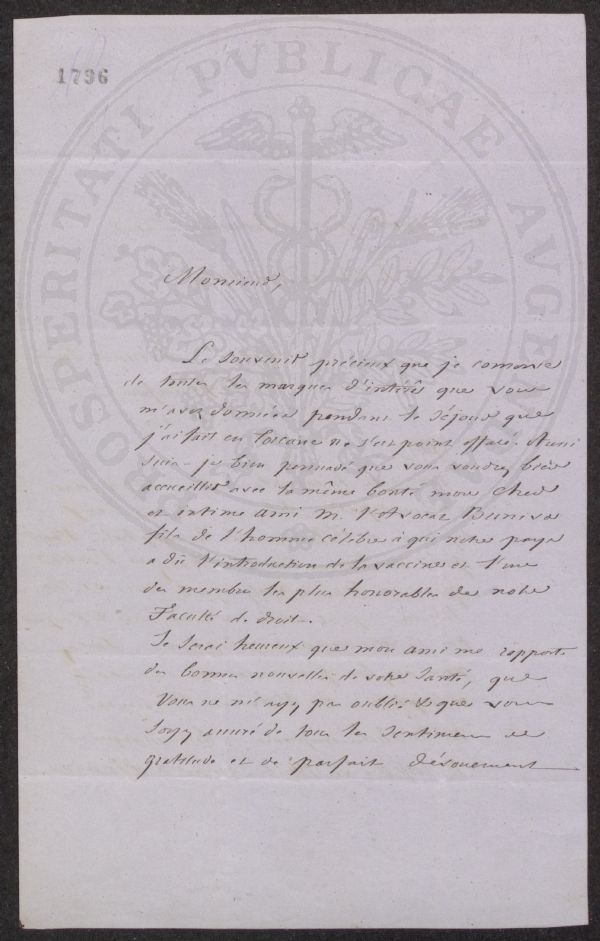 1796
PROSPERITATI PVBLICAE AVGENDAE
Monsieur,
Le souvenir précieux que je conserve
de toutes les marques d'intérêt que vous
m'avez données pendant le séjour que
j'ai fait en Toscane ne s'est point effacé. Aussi
suis-je bien persuadé que vous voudrez bien
accueillir avec la même bonté mon cher
et intime ami M. l'Avocat Buniva
fils de l'homme célèbre à qui notre pays
a dû l'introduction de la vaccine et l'un
des membres les plus honorables de notre
Faculté de droit.
Je serai heureux que mon ami me rapporte
des bonnes nouvelles de votre santé, que
vous ne m'ayez pas oublié & que vous
soyez assuré de tous les sentimens de
gratitude et de parfait dévouement